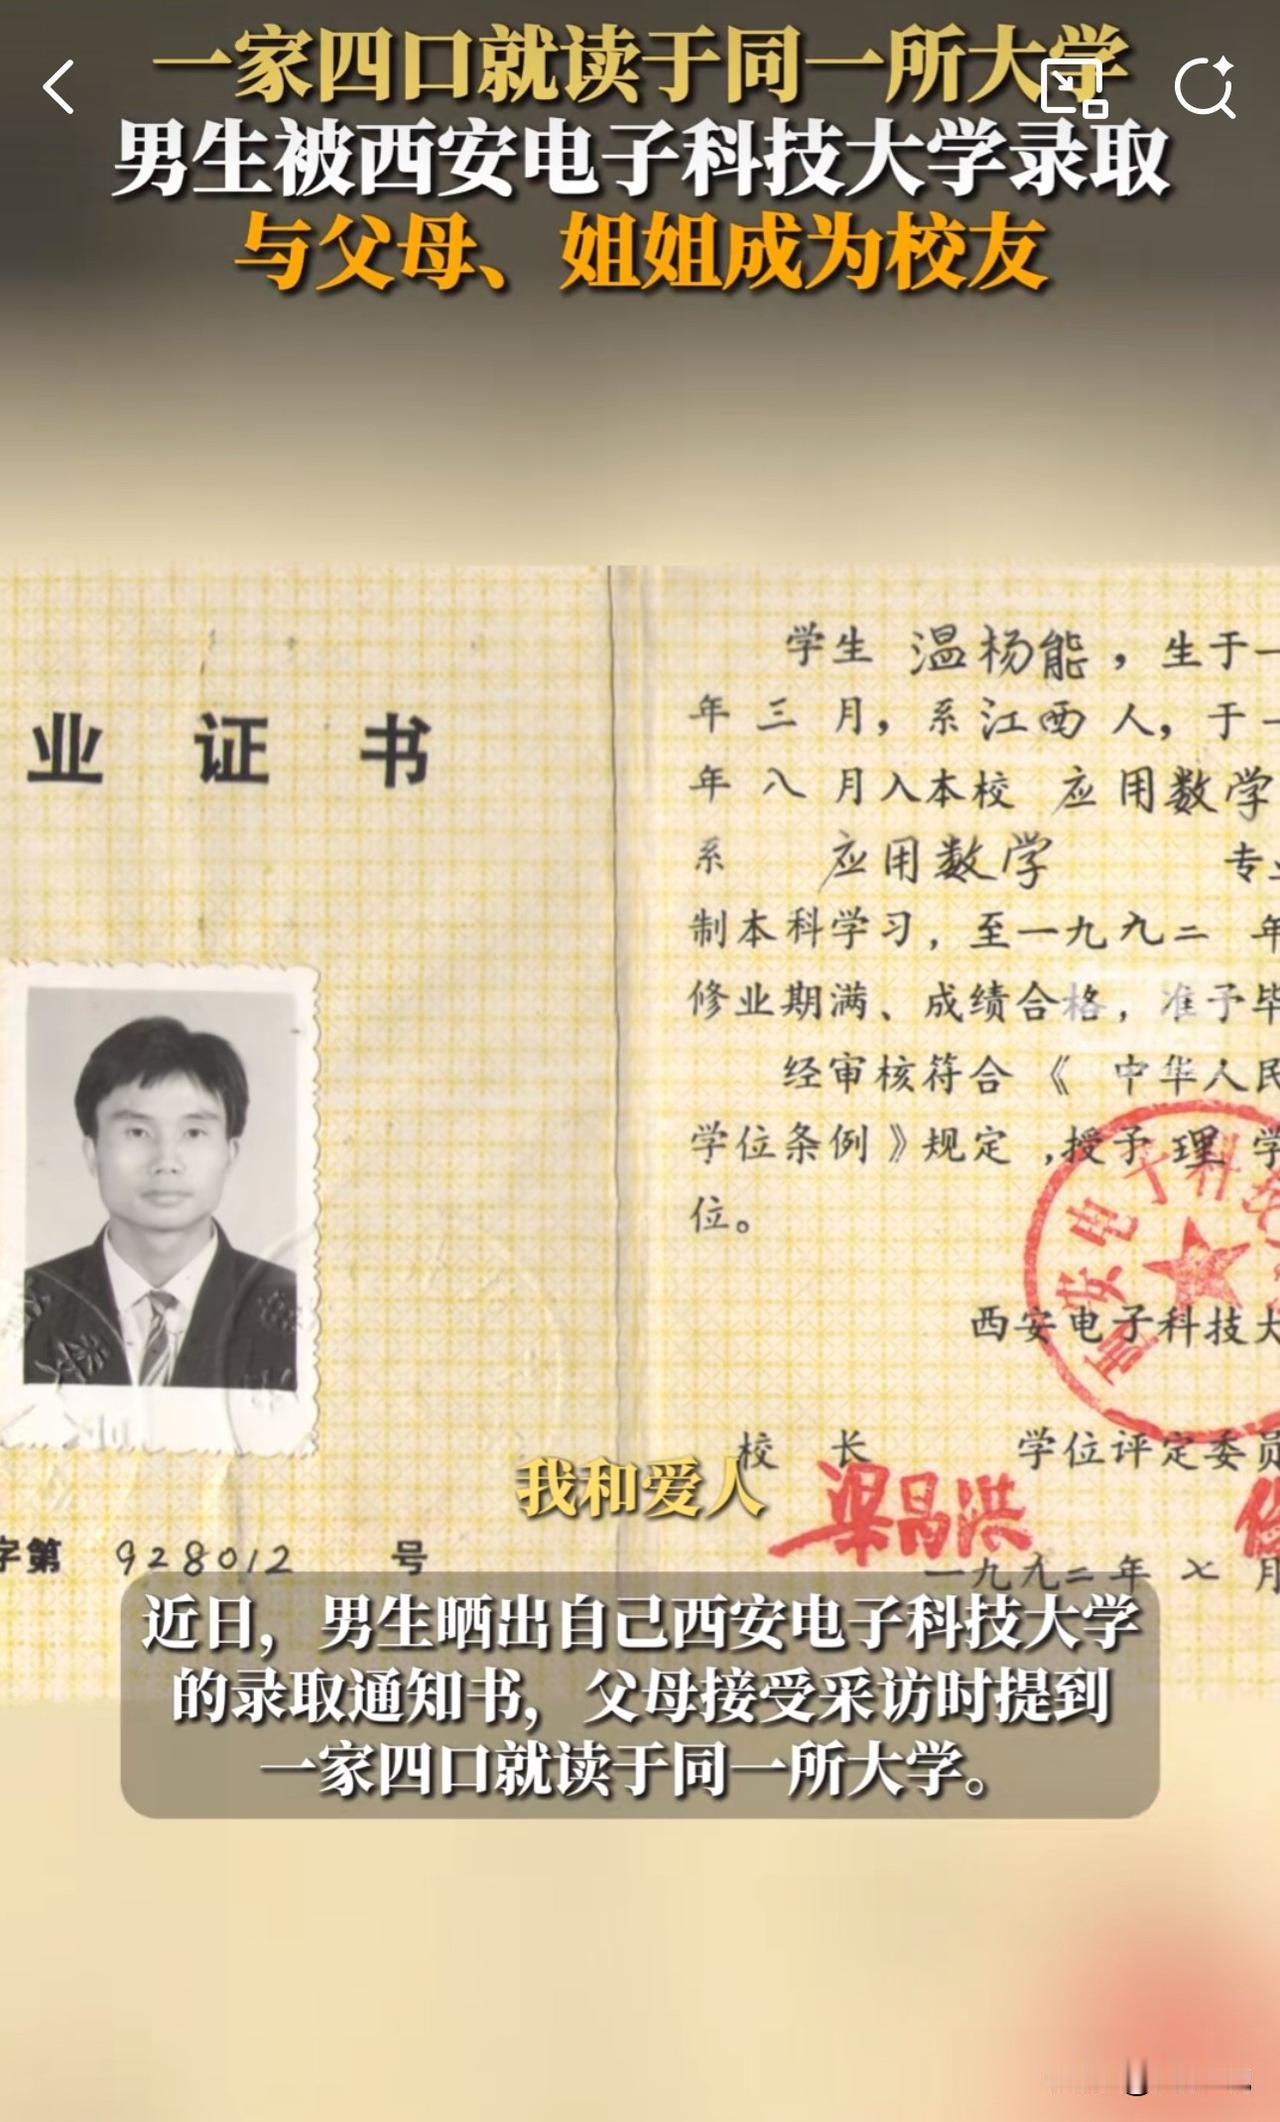 一家四口就读于同一所大学
男生被西安电子科技大学录取
与父母、姐姐成为校友
业证书
学生 温杨能，生于一
年三月，系江西人，于一
年八月入本校 应用数学
系 应用数学 专业
制本科学习，至一九九二 年
修业期满、成绩合格，准予毕
经审核符合《中华人民
学位条例》规定，授予理学
位。
西安电子科技大
西安电子科
校 长 学位评定委员
梁昌洪
一九九二年七月
字第 928012 号
我和爱人
近日，男生晒出自己西安电子科技大学
的录取通知书，父母接受采访时提到
一家四口就读于同一所大学。